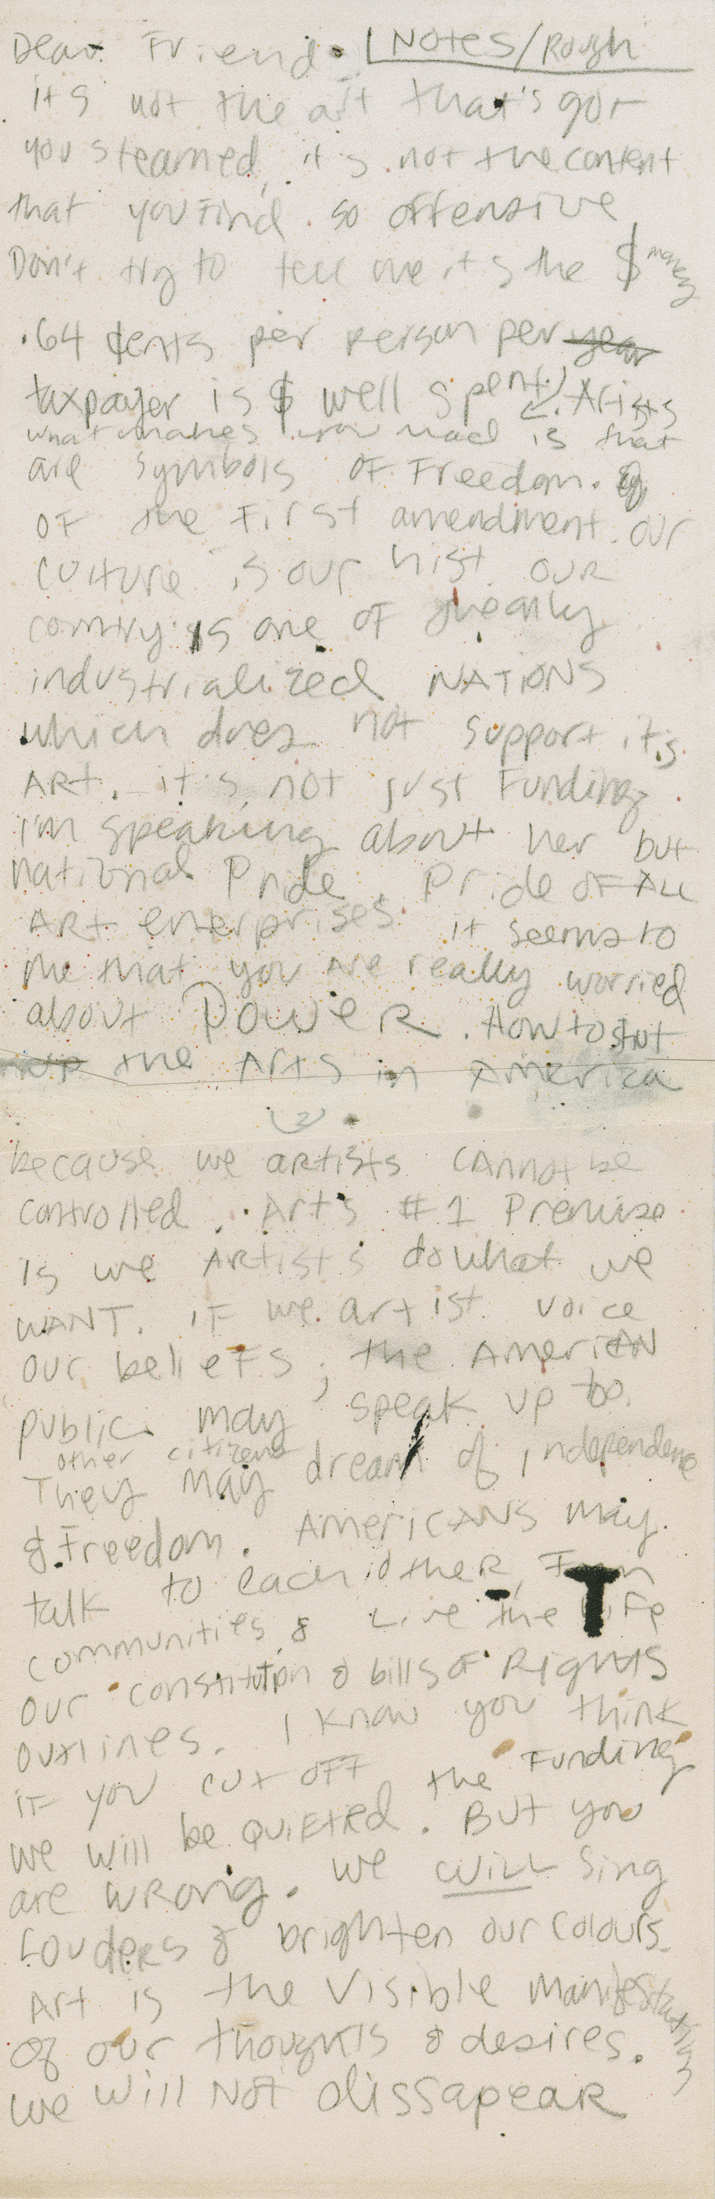 Dear Friend. Notes/Rough
it's not the art that's got
you steamed, it's not the content
that you find so offensive
Don't try to tell me it's the $ money
.64 cents per person per year
taxpayer is $ well spent. Artists
what makes you mad is that
are symbols of Freedom.
of the First amendment. our
culture is our hist. our
country is one of the only
industrialized NATIONS
which does not support it's
ART. it's not just Funding
I'm speaking about her but
national Pride. Pride of ALL
ART enterprises. it seems to
me that you are really worried
about POWER. How to shut
up the Arts in America
(2)
because we artists cannot be
controlled. Art's #1 Premise
is we Artists do what we
WANT. if we artist voice
our beliefs, the American
public may speak up too.
other citizens
They may dream of independence
& Freedom. AMERICANS may
talk to each other, Form
communities & Live the life
our constitution & bills of Rights
outlines. I know you think
if you cut off the Funding
we will be quieted. But you
are wrong. we will sing
Louders & brighten our colours.
Art is the visible manifestations
of our thoughts & desires.
we will Not dissapear